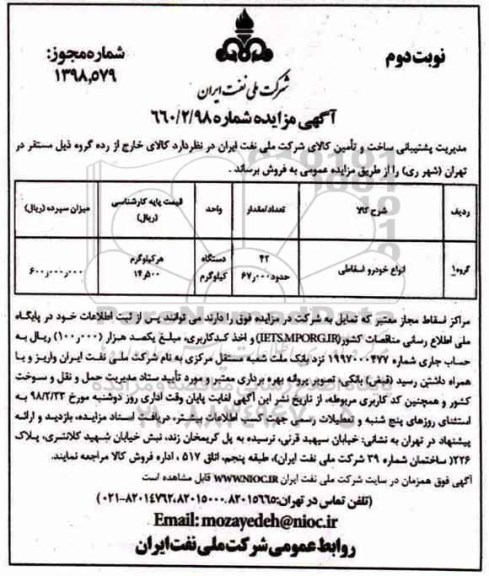 نوبت دوم
شماره مجوز:
۱۳۹۸,۵۷۹
شرکت ملی نفت ایران
آگهی مزایده شماره ۶۶۰/۲/۹۸
مدیریت پشتیبانی ساخت و تأمین کالای شرکت ملی نفت ایران در نظر دارد کالای خارج از رده گروه ذیل مستقر در
تهران (شهر ری) را از طریق مزایده عمومی به فروش برساند.
ردیف شرح کالا تعداد/مقدار واحد قیمت پایه کارشناسی (ریال) میزان سپرده (ریال)
گروه۱ انواع خودرو اسقاطی ۴۲ دستگاه هر کیلوگرم ۶۰۰,۰۰۰,۰۰۰
حدود ۶۷,۰۰۰ کیلوگرم ۱۴,۵۰۰
مراکز اسقاط مجاز معتبر که تمایل به شرکت در مزایده فوق را دارند می توانند پس از ثبت اطلاعات خود در پایگاه
ملی اطلاع رسانی مناقصات کشور(IETS.MPORG.IR) و اخذ کدکاربری، مبلغ یکصد هزار (۱۰۰,۰۰۰) ریال به
حساب جاری شماره ۱۹۹۷۰۰۴۷۷ نزد بانک ملت شعبه مستقل مرکزی به نام شرکت ملی نفت ایران واریز و با
همراه داشتن رسید (فیش) بانکی، تصویر پروانه بهره برداری معتبر و مورد تأیید ستاد مدیریت حمل و نقل و سوخت
کشور و همچنین کد کاربری مربوطه، از تاریخ نشر این آگهی لغایت پایان وقت اداری روز دوشنبه مورخ ۹۸/۲/۲۳ به
استثنای روزهای پنج شنبه و تعطیلات رسمی جهت کسب اطلاعات بیشتر، دریافت اسناد مزایده، بازدید و ارائه
پیشنهاد در تهران به نشانی: خیابان سپهبد قرنی، نرسیده به پل کریمخان زند، نبش خیابان شهید کلانتری، پلاک
۲۲۶( ساختمان شماره ۳۹ شرکت ملی نفت ایران)، طبقه پنجم، اتاق ۵۱۷ ، اداره فروش کالا مراجعه نمایند.
آگهی فوق همزمان در سایت شرکت ملی نفت ایران WWW.NIOC.IR قابل مشاهده است
(تلفن تماس در تهران: ۸۲۰۱۵۶۶۵ ,۸۲۰۱۵۰۰۰ ,۸۲۰۱۴۷۶۲-۰۲۱)
Email: mozayedeh@nioc.ir
روابط عمومی شرکت ملی نفت ایران